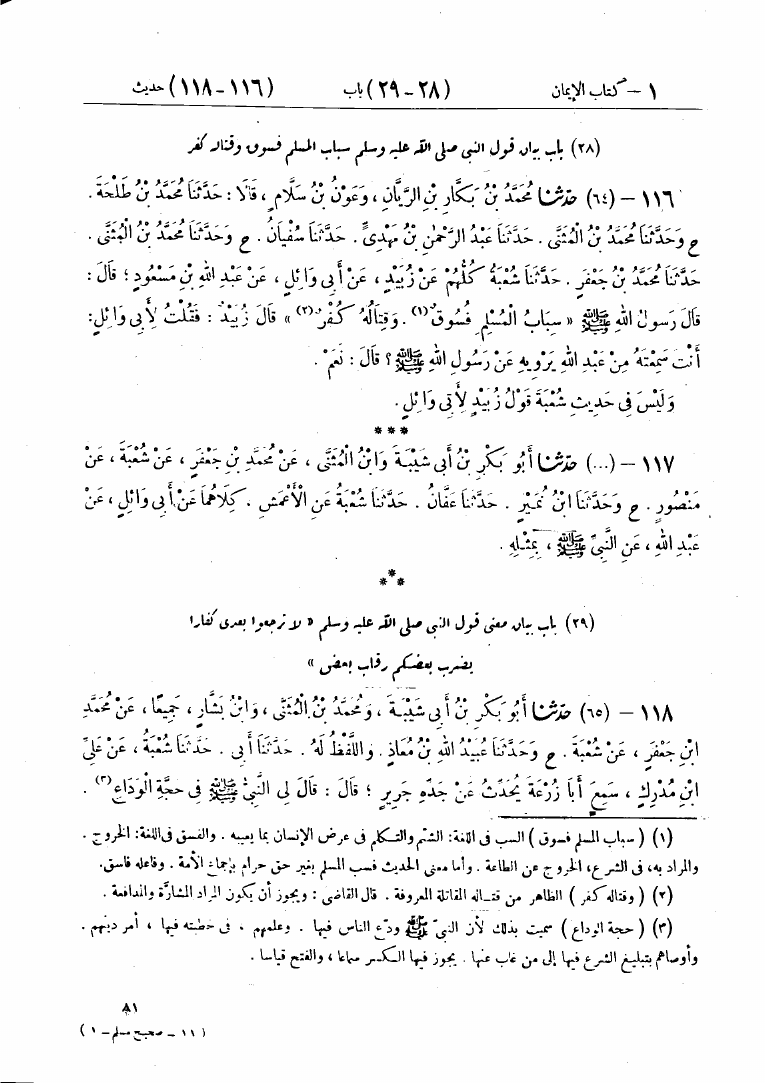 ١ – كتاب الإيمان (٢٨ – ٢٩) باب (١١٦ – ١١٨) حديث
(٢٨) باب بيان قول النبي صلى الله عليه وسلم سباب المسلم فسوق وقتاله كفر
١١٦ – (٦٤) حَدَّثَنَا مُحَمَّدُ بْنُ بَكَّارِ بْنِ الرَّيَّانِ، وَعَوْنُ بْنُ سَلَّامٍ، قَالَا: حَدَّثَنَا مُحَمَّدُ بْنُ طَلْحَةَ.
ح وَحَدَّثَنَا مُحَمَّدُ بْنُ الْمُثَنَّى. حَدَّثَنَا عَبْدُ الرَّحْمٰنِ بْنُ مَهْدِيٍّ. حَدَّثَنَا سُفْيَانُ. ح وَحَدَّثَنَا مُحَمَّدُ بْنُ الْمُثَنَّى.
حَدَّثَنَا مُحَمَّدُ بْنُ جَعْفَرٍ. حَدَّثَنَا شُعْبَةُ كُلُّهُمْ عَنْ زُبَيْدٍ، عَنْ أَبِي وَائِلٍ، عَنْ عَبْدِ اللهِ بْنِ مَسْعُودٍ؛ قَالَ:
قَالَ رَسُولُ اللهِ ﷺ «سِبَابُ الْمُسْلِمِ فُسُوقٌ(١). وَقِتَالُهُ كُفْرٌ(٢)» قَالَ زُبَيْدٌ: فَقُلْتُ لِأَبِي وَائِلٍ:
أَنْتَ سَمِعْتَهُ مِنْ عَبْدِ اللهِ يَرْوِيهِ عَنْ رَسُولِ اللهِ ﷺ؟ قَالَ: نَعَمْ.
وَلَيْسَ فِي حَدِيثِ شُعْبَةَ قَوْلُ زُبَيْدٍ لِأَبِي وَائِلٍ.
***
١١٧ – (...) حَدَّثَنَا أَبُو بَكْرِ بْنُ أَبِي شَيْبَةَ وَابْنُ الْمُثَنَّى، عَنْ مُحَمَّدِ بْنِ جَعْفَرٍ، عَنْ شُعْبَةَ، عَنْ
مَنْصُورٍ. ح وَحَدَّثَنَا ابْنُ نُمَيْرٍ. حَدَّثَنَا عَفَّانُ. حَدَّثَنَا شُعْبَةُ عَنِ الْأَعْمَشِ. كِلَاهُمَا عَنْ أَبِي وَائِلٍ، عَنْ
عَبْدِ اللهِ، عَنِ النَّبِيِّ ﷺ، بِمِثْلِهِ.
***
(٢٩) باب بيان معنى قول النبي صلى الله عليه وسلم «لا ترجعوا بعدي كفارا
يضرب بعضكم رقاب بعض»
١١٨ – (٦٥) حَدَّثَنَا أَبُو بَكْرِ بْنُ أَبِي شَيْبَةَ، وَمُحَمَّدُ بْنُ الْمُثَنَّى، وَابْنُ بَشَّارٍ، جَمِيعًا، عَنْ مُحَمَّدِ
ابْنِ جَعْفَرٍ، عَنْ شُعْبَةَ. ح وَحَدَّثَنَا عُبَيْدُ اللهِ بْنُ مُعَاذٍ. وَاللَّفْظُ لَهُ. حَدَّثَنَا أَبِي. حَدَّثَنَا شُعْبَةُ، عَنْ عَلِيِّ
ابْنِ مُدْرِكٍ، سَمِعَ أَبَا زُرْعَةَ يُحَدِّثُ عَنْ جَدِّهِ جَرِيرٍ؛ قَالَ: قَالَ لِيَ النَّبِيُّ ﷺ فِي حَجَّةِ الْوَدَاعِ(٣).
(١) (سباب المسلم فسوق) السب في اللغة: الشتم والتكلم في عرض الإنسان بما يعيبه. والفسق في اللغة: الخروج.
والمراد به، في الشرع، الخروج عن الطاعة. وأما معنى الحديث فسب المسلم بغير حق حرام بإجماع الأمة. وفاعله فاسق.
(٢) (وقتاله كفر) الظاهر من قتاله المقاتلة المعروفة. قال القاضي: ويجوز أن يكون المراد المشارّة والمدافعة.
(٣) (حجة الوداع) سميت بذلك لأن النبيّ ﷺ ودّع الناس فيها. وعلمهم، في خطبته فيها، أمر دينهم.
وأوصاهم بتبليغ الشرع فيها إلى من غاب عنها. يجوز فيها الكسر سماعا، والفتح قياسا.
٨١
(١١ – صحيح مسلم – ١)